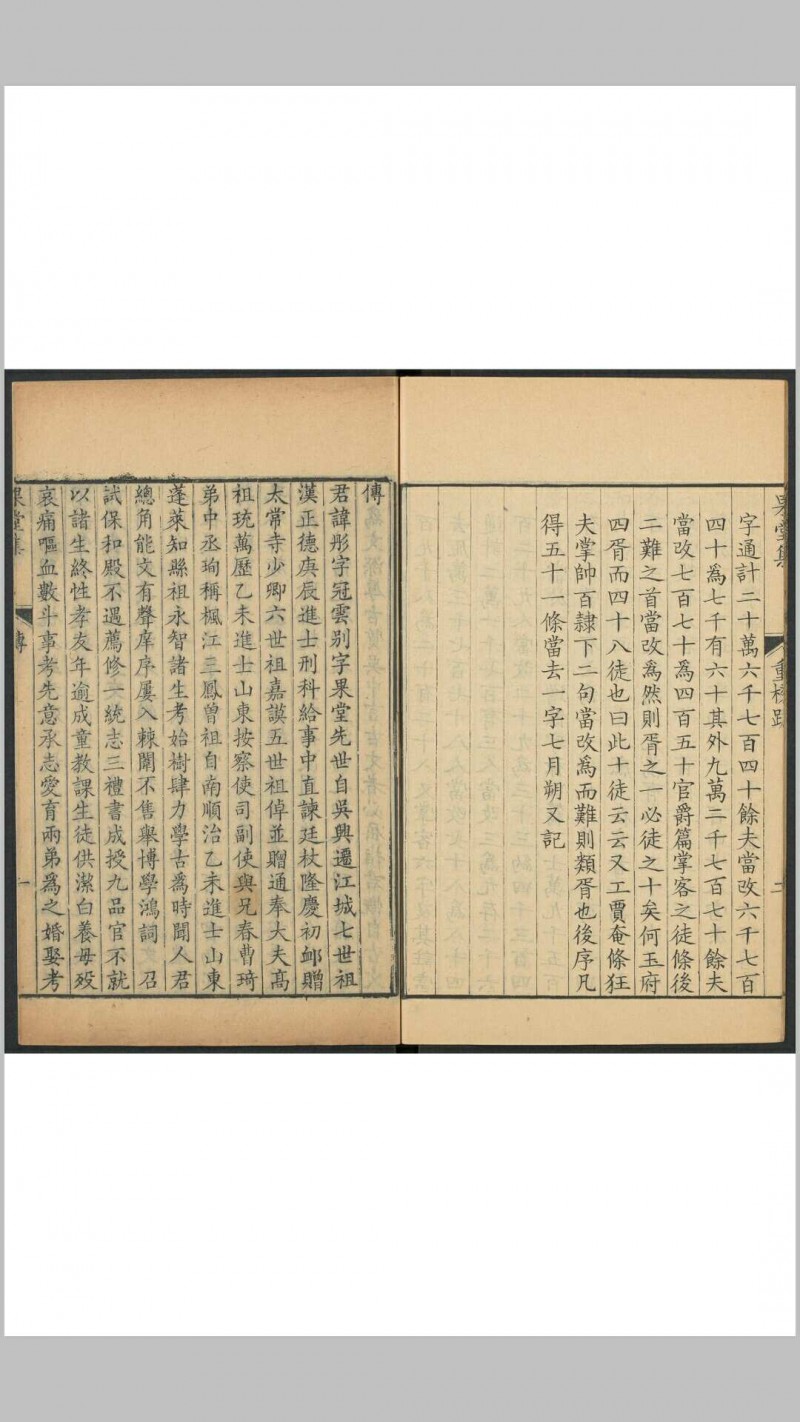 果堂集
重校跋
二
字通計二十萬六千七百四十餘夫當改六千七百
四十爲七千有六十其外九萬二千七百七十餘夫
當改七百七十爲四百五十官爵篇掌客之徒條後
二難之首當改爲然則胥之一必徒之十矣何玉府
四胥而四十八徒也曰此十徒云云又工賈奄條狂
夫掌帥百隸下二句當改爲而難則類胥也後序凡
得五十一條當去一字七月朔又記
傳
君諱彤字冠雲别字果堂先世自吳興遷江城七世祖
漢正德庚辰進士刑科給事中直諫廷杖隆慶初䘏贈
太常寺少卿六世祖嘉謨五世祖倬並贈通奉大夫高
祖珫萬歷乙未進士山東按察使司副使與兄春曹琦
弟中丞珣稱楓江三鳳曾祖自南順治乙未進士山東
蓬萊知縣祖永智諸生考始樹肆力學古爲時聞人君
總角能文有聲庠序屢入棘闈不售舉博學鴻詞 召
試保和殿不遇薦修一統志三禮書成授九品官不就
以諸生終性孝友年逾成童教課生徒供潔白養母歿
哀痛嘔血數斗事考先意承志愛育兩弟爲之婚娶考
果堂集
傳
一